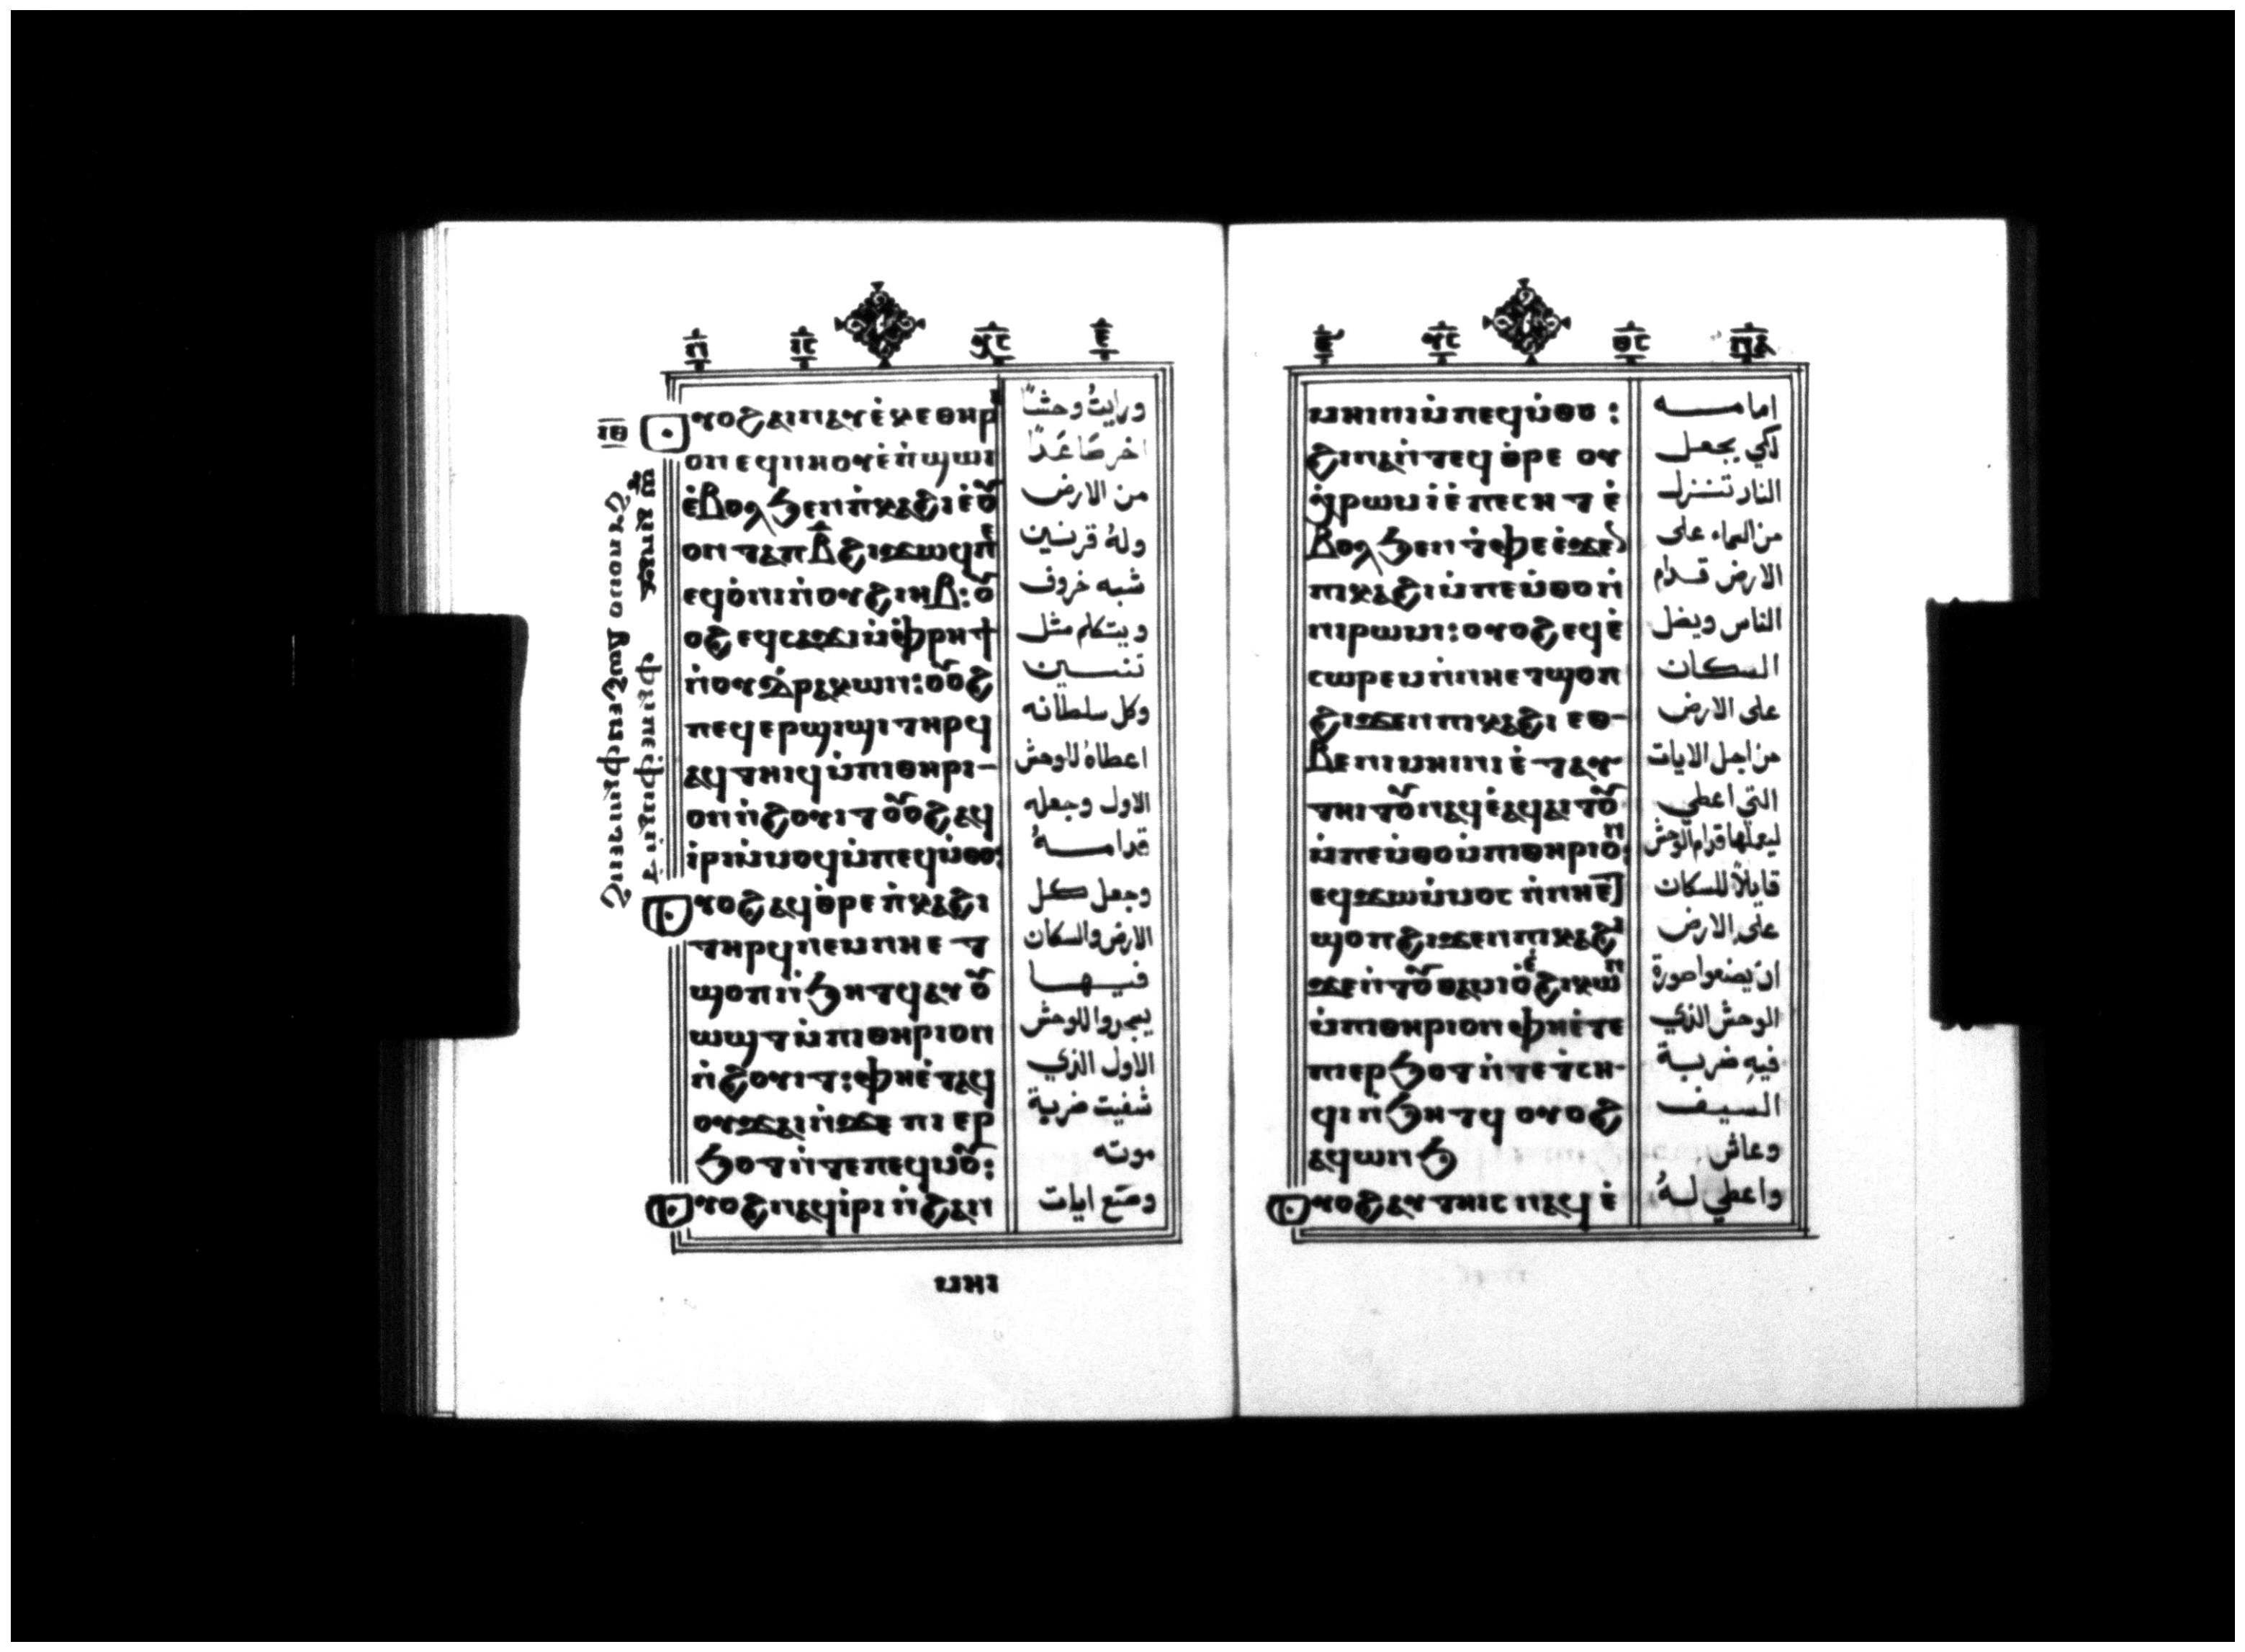 ⲟⲩⲟϩ ⲁⲓⲛⲁⲩ ⲉⲕⲉⲑⲏⲣ
ⲓⲟⲛ ⲉϥⲛⲏⲟⲩ ⲉ̀ⲡϣⲱⲓ
ⲉ̀ⲃⲟⲗϧⲉⲛ ⲡ̀ⲕⲁϩⲓ ⲉ̀ⲟⲩ
ⲟⲛ ⲧⲁⲡ ⲃ̄ ϩⲓϫⲱϥ
ⲉϥⲟ̀ⲛⲓ ⲛ̀ⲟⲩϩⲓⲏⲃ: ⲟ̀ⲩ
ⲟϩ ⲉϥⲥⲁϫⲓ ⲙ̀ⲫⲣⲏϯ
ⲛ̀ⲟⲩⲇⲣⲁⲕⲱⲛ: ⲟⲩⲟϩ
ⲡⲉϥⲉⲣϣⲓϣⲓ ⲧⲏⲣϥ
ⲁϥⲧⲏⲓϥ ⲙ̀ⲡⲓⲑⲏⲣⲓ
ⲟⲛ ⲛ̀ϩⲟⲩⲓⲧ ⲟⲩⲟϩ ⲁϥ
ⲓⲣⲓ ⲙ̀ⲙⲟϥ ⲙ̀ⲡⲉϥⲙ̀ⲑⲟ:
ⲟⲩⲟϩ ⲁϥⲑ̀ⲣⲉ ⲡ̀ⲕⲁϩⲓ
ⲧⲏⲣϥ ⲛⲉⲙ ⲛⲏ ⲉⲧ
ϣⲟⲡ ⲛ̀ϧⲏⲧϥ ⲁⲩⲟⲩ
ⲱϣⲧ ⲙ̀ⲡⲓⲑⲏⲣⲓⲟⲛ
ⲛ̀ϩⲟⲩⲓⲧ: ⲫⲏ ⲉ̀ⲧⲁϥ
ⲟⲩϫⲁⲓ ⲛ̀ϫⲉ ⲡⲓ ⲉⲣ
ϧⲟⲧ ⲛ̀ⲧⲉ ⲡⲉϥⲙ̀ⲟⲩ:
ⲟⲩⲟϩ ⲛⲁϥⲓ̀ⲣⲓ ⲛ̀ϩⲁⲛ
ⲙⲏⲓ
ورايتُ وحشًا
اخر صَاعَدًا
من الارض
ولهُ قرنين
شبه خروف
ويتكلم مثل
تنسين
وكل سلطانه
اعطاهُ للوحش
الاول وجعله
قدامـــهُ
وجعل كل
الارض والسكان
فيـهـا
يسجدوا للوحش
الاول الذي
شفيت ضربة
موته
وصَنع ايات
ⲙⲏⲓⲛⲓ ⲙ̀ⲡⲉϥⲙ̀ⲑⲟ:
ϩⲓⲛⲁ ⲛ̀ⲧⲉϥⲑ̀ⲣⲉ ⲟⲩ
ⲭ̀ⲣⲱⲙ ⲓ̀ ⲉ̀ⲡⲉⲥⲏⲧ ⲉ̀
ⲃⲟⲗϧⲉⲛ ⲧ̀ⲫⲉ ⲉ̀ϫⲉⲛ
ⲡⲕⲁϩⲓ ⲙ̀ⲡⲉⲙ̀ⲑⲟ ⲛ̀
ⲛⲓⲣⲱⲙⲓ: ⲟⲩⲟϩ ⲉϥⲉ̀
ⲥⲱⲣⲉⲙ ⲛ̀ⲛⲏ ⲉⲧϣⲟⲡ
ϩⲓϫⲉⲛ ⲡⲕⲁϩⲓ ⲉⲑ
ⲃⲉ ⲛⲓⲙⲏⲓⲛⲓ ⲉ̀ⲧⲁⲩ
ⲧⲏⲓⲧⲟⲩ ⲛⲁϥ ⲉ̀ⲁⲓⲧⲟⲩ
ⲙ̀ⲡⲉⲙ̀ⲑⲟ ⲙ̀ⲡⲓⲑⲏⲣⲓⲟⲛ:
ⲉϥϫⲱ ⲙ̀ⲙⲟⲥ ⲛ̀ⲛⲏ ⲉ
ⲧϣⲟⲡ ϩⲓϫⲉⲛ ⲡⲕⲁϩⲓ
ⲙ̀ⲡⲓⲑⲏⲣⲓⲟⲛ ⲫⲏ ⲉ̀ⲧⲉ
ⲡⲓⲉⲣϧⲟⲧ ⲛ̀ⲧⲉ ⲧ̀ⲥⲏ
ϥⲓ ⲛ̀ϧⲏⲧϥ ⲟⲩⲟϩ
ⲁϥⲱⲛϧ
ⲟⲩⲟϩ ⲁⲩⲧⲏⲓⲥ ⲛⲁϥ ⲉ̀
امامــه
لكي يجعل
النار تنزل
من السماء على
الارض قدام
الناس ويضل
السكان
على الارض
من اجل الايات
التي اعطي
ليعملها قدام الوحش
قايلاً للسكان
على الارض
ان يصنعوا صورة
الوحش الذي
فيهِ ضربة
السيف
وعاش
واعطي لــهُ